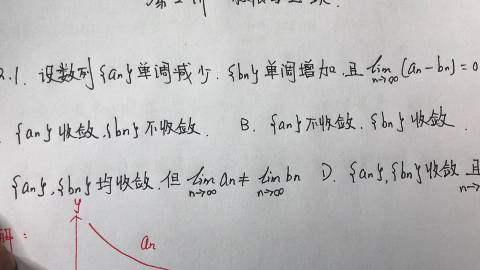 2.1. 设数列{an}单调减少.{bn}单调增加.且lim n→∞ (an-bn)=0
{an}收敛.{bn}不收敛. B. {an}不收敛.{bn}收敛.
{an},{bn}均收敛.但lim n→∞ an≠lim n→∞ bn D. {an},{bn}收敛 且 n→
解:
y
an